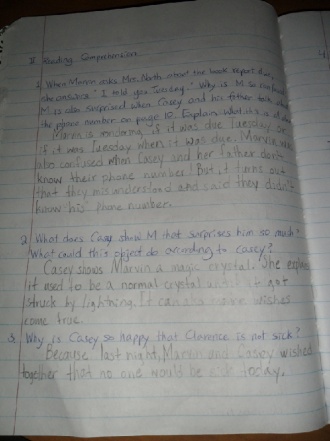 II Reading Comprehension
1. When Marvin asks Mrs. North about the book report due,
she answers "I told you Tuesday." Why is M so confused
M is also surprised when Casey and his father talk about
the phone number on page 10. Explain what is
Marvin is wondering if it was due Tuesday or
if it was Tuesday when it was due. Marvin was
also confused when Casey and her father don't
know their phone number! But it turns out
that they misunderstood and said they didn't
know his phone number.
2. What does Casey show M that surprises him so much?
What could this object do according to Casey?
Casey shows Marvin a magic crystal. She explains
it used to be a normal crystal until it got
struck by lightning. It can make wishes
come true.
3. Why is Casey so happy that Clarence is not sick?
Because last night, Marvin and Casey wished
together that no one would be sick today.